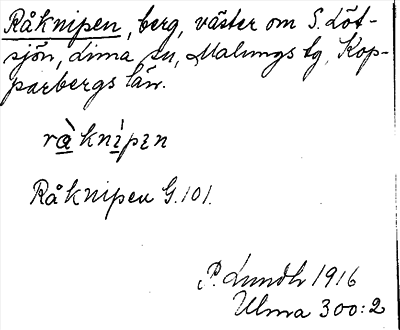 Råknipen, berg, väster om S. Löt-
sjön, Lima sn, Malungs tg, Kop-
parbergs län.
rà̱kni̱̇̀pın
Råknipen G.101.
P. Lundh 1916
Ulma 300:2